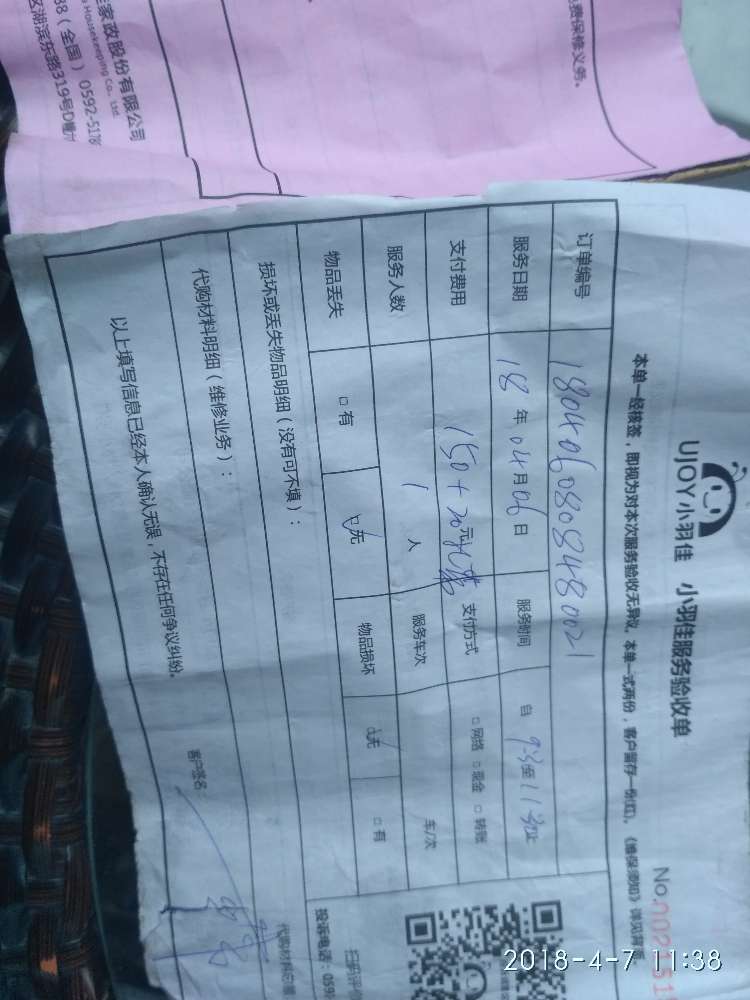 费保修义务。
家政股份有限公司
Housekeeping Co., Ltd.
38（全国）0592-5178
区湖滨东路319号D幢六
UJOY小羽佳 小羽佳服务验收单
No.
本单一经核签，即视为对本次服务验收无异议。本单一式两份，客户留存一份(红)。《维保须知》详见背面。
订单编号 1804060808480021
服务日期 18年04月06日 服务时间 自 9:30至11:30止
支付费用 150+20元 支付方式 □网络 □现金 □转账
服务人数 1 人 服务车次 车/次
物品丢失 □有 ☑无 物品损坏 ☑无 □有
损坏或丢失物品明细（没有可不填）：
代购材料明细（维修业务）：
以上填写信息已经本人确认无误，不存在任何争议纠纷。
客户签名：
扫码评价
投诉电话：059
2018-4-7 11:38